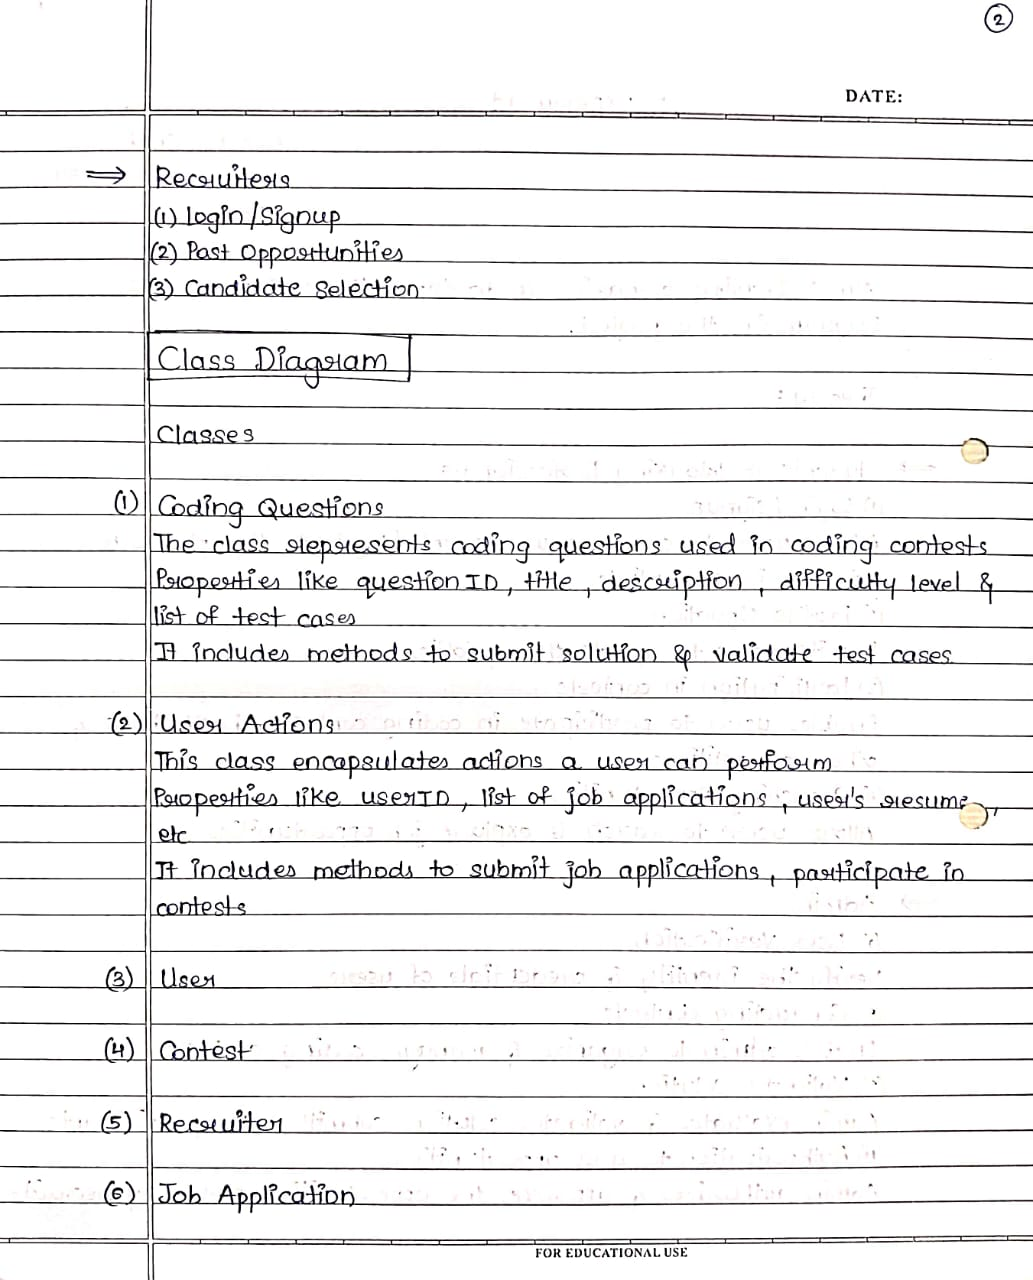 2
DATE:
⇒ Recruiters
(1) Login/Signup
(2) Past Opportunities
(3) Candidate Selection
Class Diagram
Classes
(1) Coding Questions
The class represents coding questions used in coding contests
Properties like question ID, title, description, difficulty level &
list of test cases
It includes methods to submit solution & validate test cases
(2) User Actions
This class encapsulates actions a user can perform
Properties like userID, list of job applications, user's resume,
etc
It includes methods to submit job applications, participate in
contests
(3) User
(4) Contest
(5) Recruiter
(6) Job Application
FOR EDUCATIONAL USE